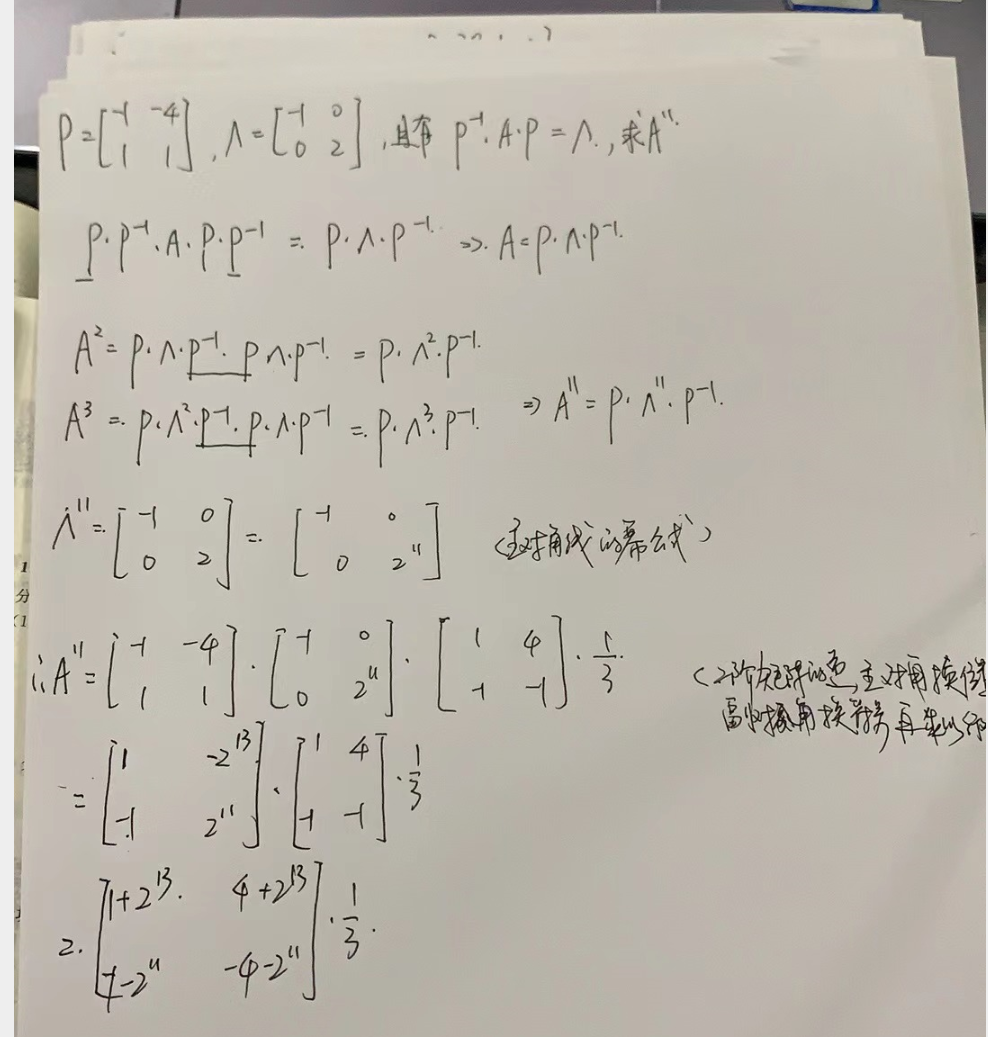 P=[-1 -4; 1 1], Λ=[-1 0; 0 2], 且有 P⁻¹·A·P=Λ., 求A¹¹.
P·P⁻¹·A·P·P⁻¹ = P·Λ·P⁻¹. ⇒ A=P·Λ·P⁻¹.
A²=P·Λ·P⁻¹·PΛ·P⁻¹. = P·Λ²·P⁻¹.
A³=P·Λ²·P⁻¹·P·Λ·P⁻¹ = P·Λ³·P⁻¹. ⇒ A¹¹=P·Λ¹¹·P⁻¹.
Λ¹¹=[-1 0; 0 2] = [-1 0; 0 2¹¹] (主对角线的幂公式)
∴A¹¹=[-1 -4; 1 1]·[-1 0; 0 2¹¹]·[1 4; -1 -1]·1/3.
(2阶矩阵的逆,主对角换
副对角换 再乘以
=[1 -2¹³; -1 2¹¹]·[1 4; -1 -1]·1/3
[1+2¹³. 4+2¹³; -2¹¹ -4-2¹¹]·1/3.
1
分
(1